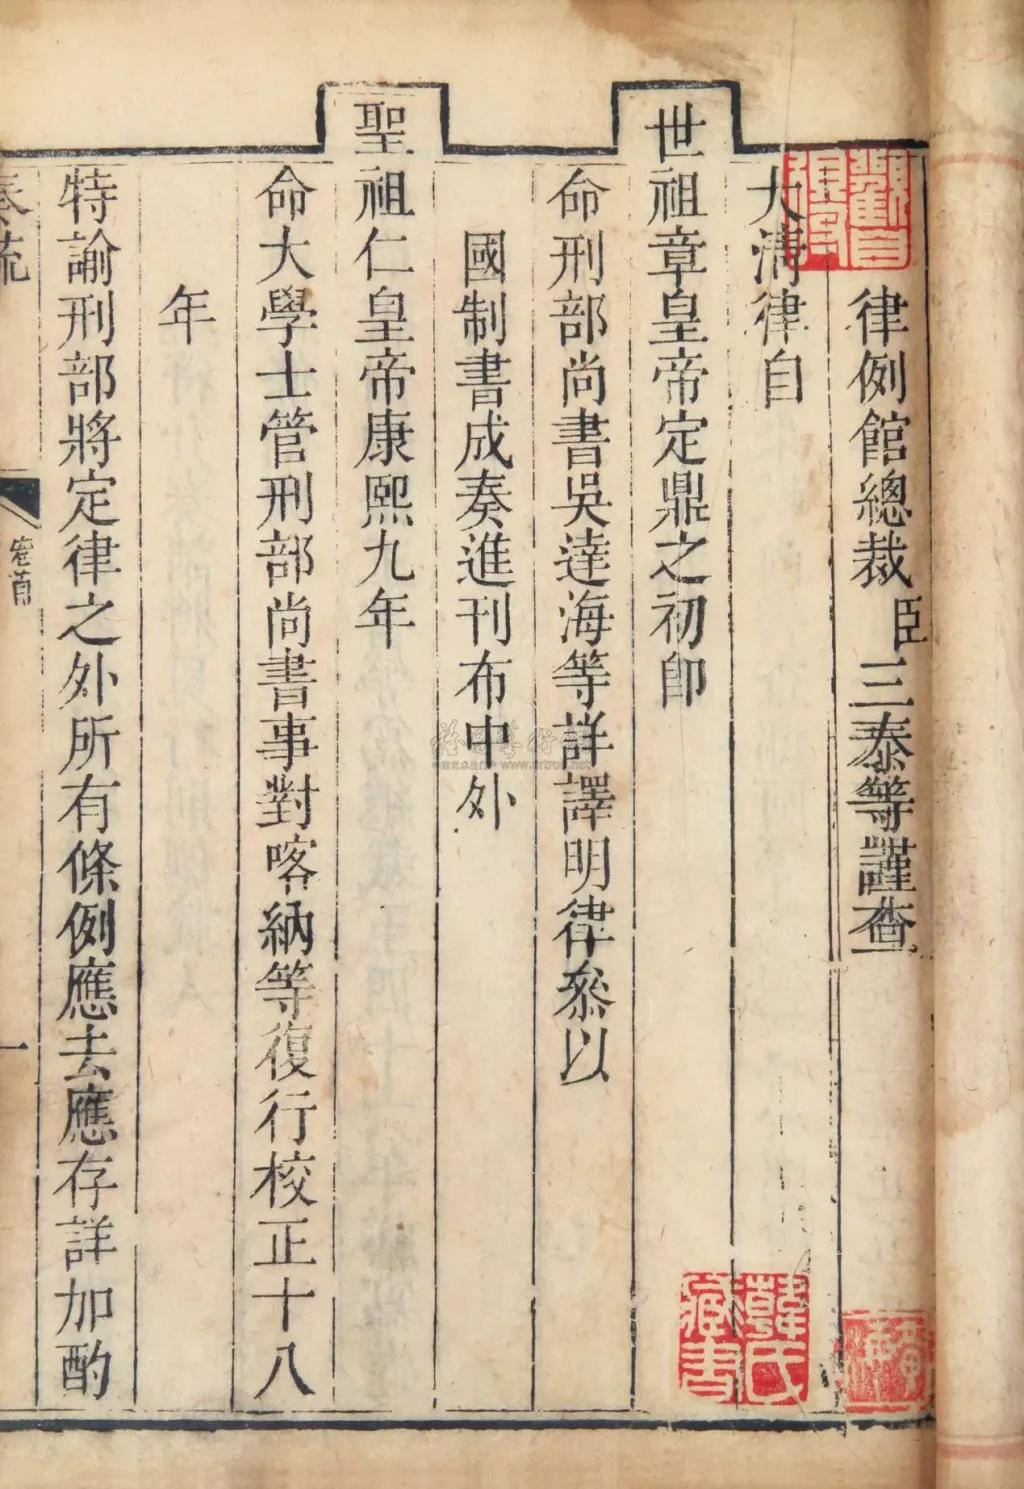 律例館總裁臣三泰等謹查
大清律自
世祖章皇帝定鼎之初卽
命刑部尚書吳達海等詳譯明律叅以
國制書成奏進刊布中外
聖祖仁皇帝康熙九年
命大學士管刑部尚書事對喀納等復行校正十八
年
特諭刑部將定律之外所有條例應去應存詳加酌
奏疏
卷首
一
韓氏
藏書